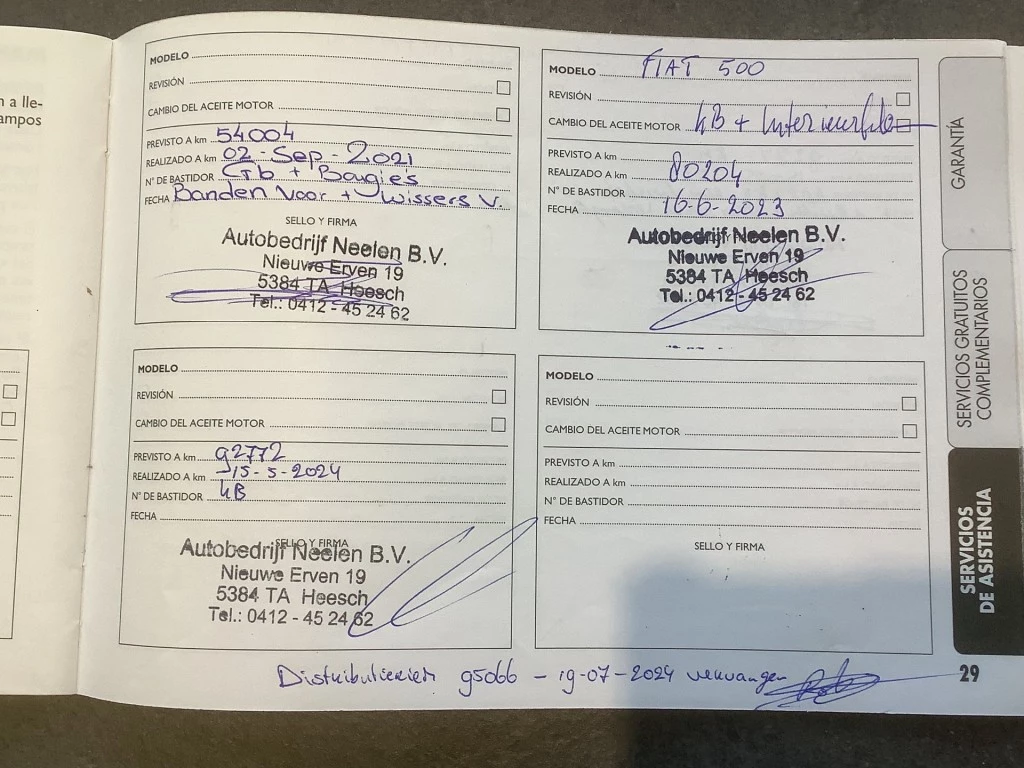 n a lle-
ampos
MODELO
REVISIÓN
CAMBIO DEL ACEITE MOTOR
PREVISTO A km 54004
REALIZADO A km 02-Sep-2021
N° DE BASTIDOR Gb + Bougies
FECHA Banden Voor + wissers V.
SELLO Y FIRMA
Autobedrijf Neelen B.V.
Nieuwe Erven 19
5384 TA Heesch
Tel.: 0412 - 45 24 62
MODELO FIAT 500
REVISIÓN
CAMBIO DEL ACEITE MOTOR
PREVISTO A km
REALIZADO A km 80204
N° DE BASTIDOR
FECHA 16-6-2023
SELLO Y FIRMA
Autobedrijf Neelen B.V.
Nieuwe Erven 19
5384 TA Heesch
Tel.: 0412 - 45 24 62
MODELO
REVISIÓN
CAMBIO DEL ACEITE MOTOR
PREVISTO A km 92772
REALIZADO A km 15-5-2024
N° DE BASTIDOR
FECHA
SELLO Y FIRMA
Autobedrijf Neelen B.V.
Nieuwe Erven 19
5384 TA Heesch
Tel.: 0412 - 45 24 62
MODELO
REVISIÓN
CAMBIO DEL ACEITE MOTOR
PREVISTO A km
REALIZADO A km
N° DE BASTIDOR
FECHA
SELLO Y FIRMA
Distributieriem 95066 - 19-07-2024 vervangen
GARANTÍA
SERVICIOS GRATUITOS
COMPLEMENTARIOS
SERVICIOS
DE ASISTENCIA
29